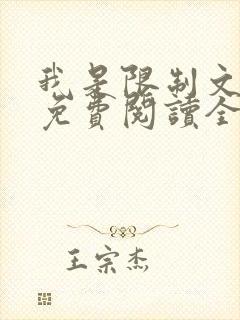 我是限制文
免費閱讀全
王宗杰